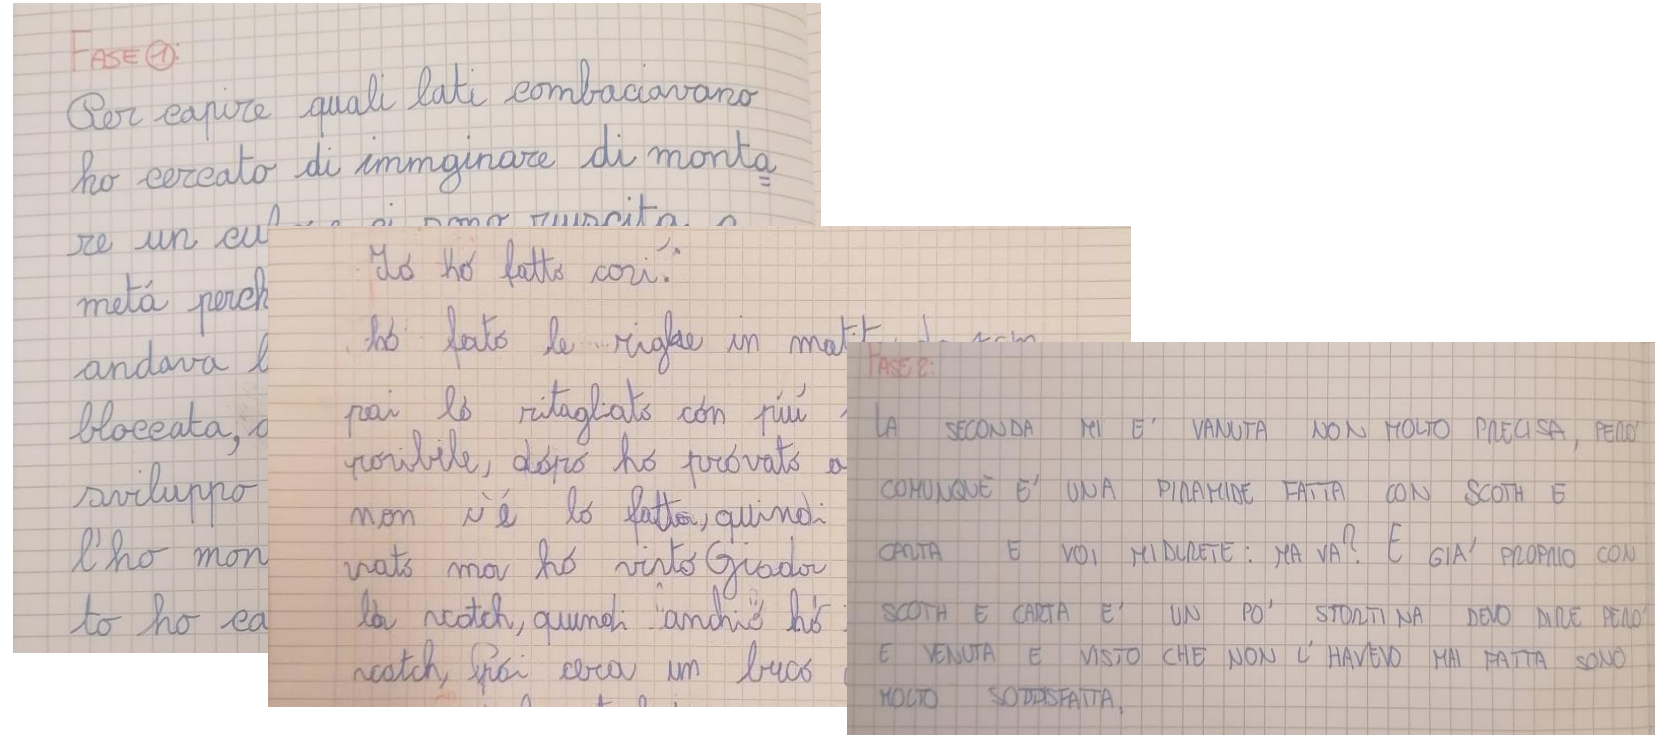 FASE 1:
Per capire quali lati combaciavano
ho cercato di immginare di monta
re un
metá perch
andava l
bloccata,
sviluppo
l'ho mon
to ho ca
Ió hó fatto cosí:
hó fató le righe in
poi ló ritagliató cón piú
posibile, dópó hó próvató a
non
ló fatto, quindi
vató ma hó vistó Giada
la scotch, quindi anchió hó
scotch, Pói cera un bucó
FASE 2:
LA SECONDA MI E' VANUTA NON MOLTO PRECISA, PERO'
COMUNQUE E' UNA PIRAMIDE FATTA CON SCOTH E
CARTA E VOI MI DIRETE: MA VA? E GIA' PROPRIO CON
SCOTH E CARTA E' UN PO' STORTINA DEVO DIRE PERO'
E VENUTA E VISTO CHE NON L'HAVEVO MAI FATTA SONO
MOLTO SODDISFATTA.